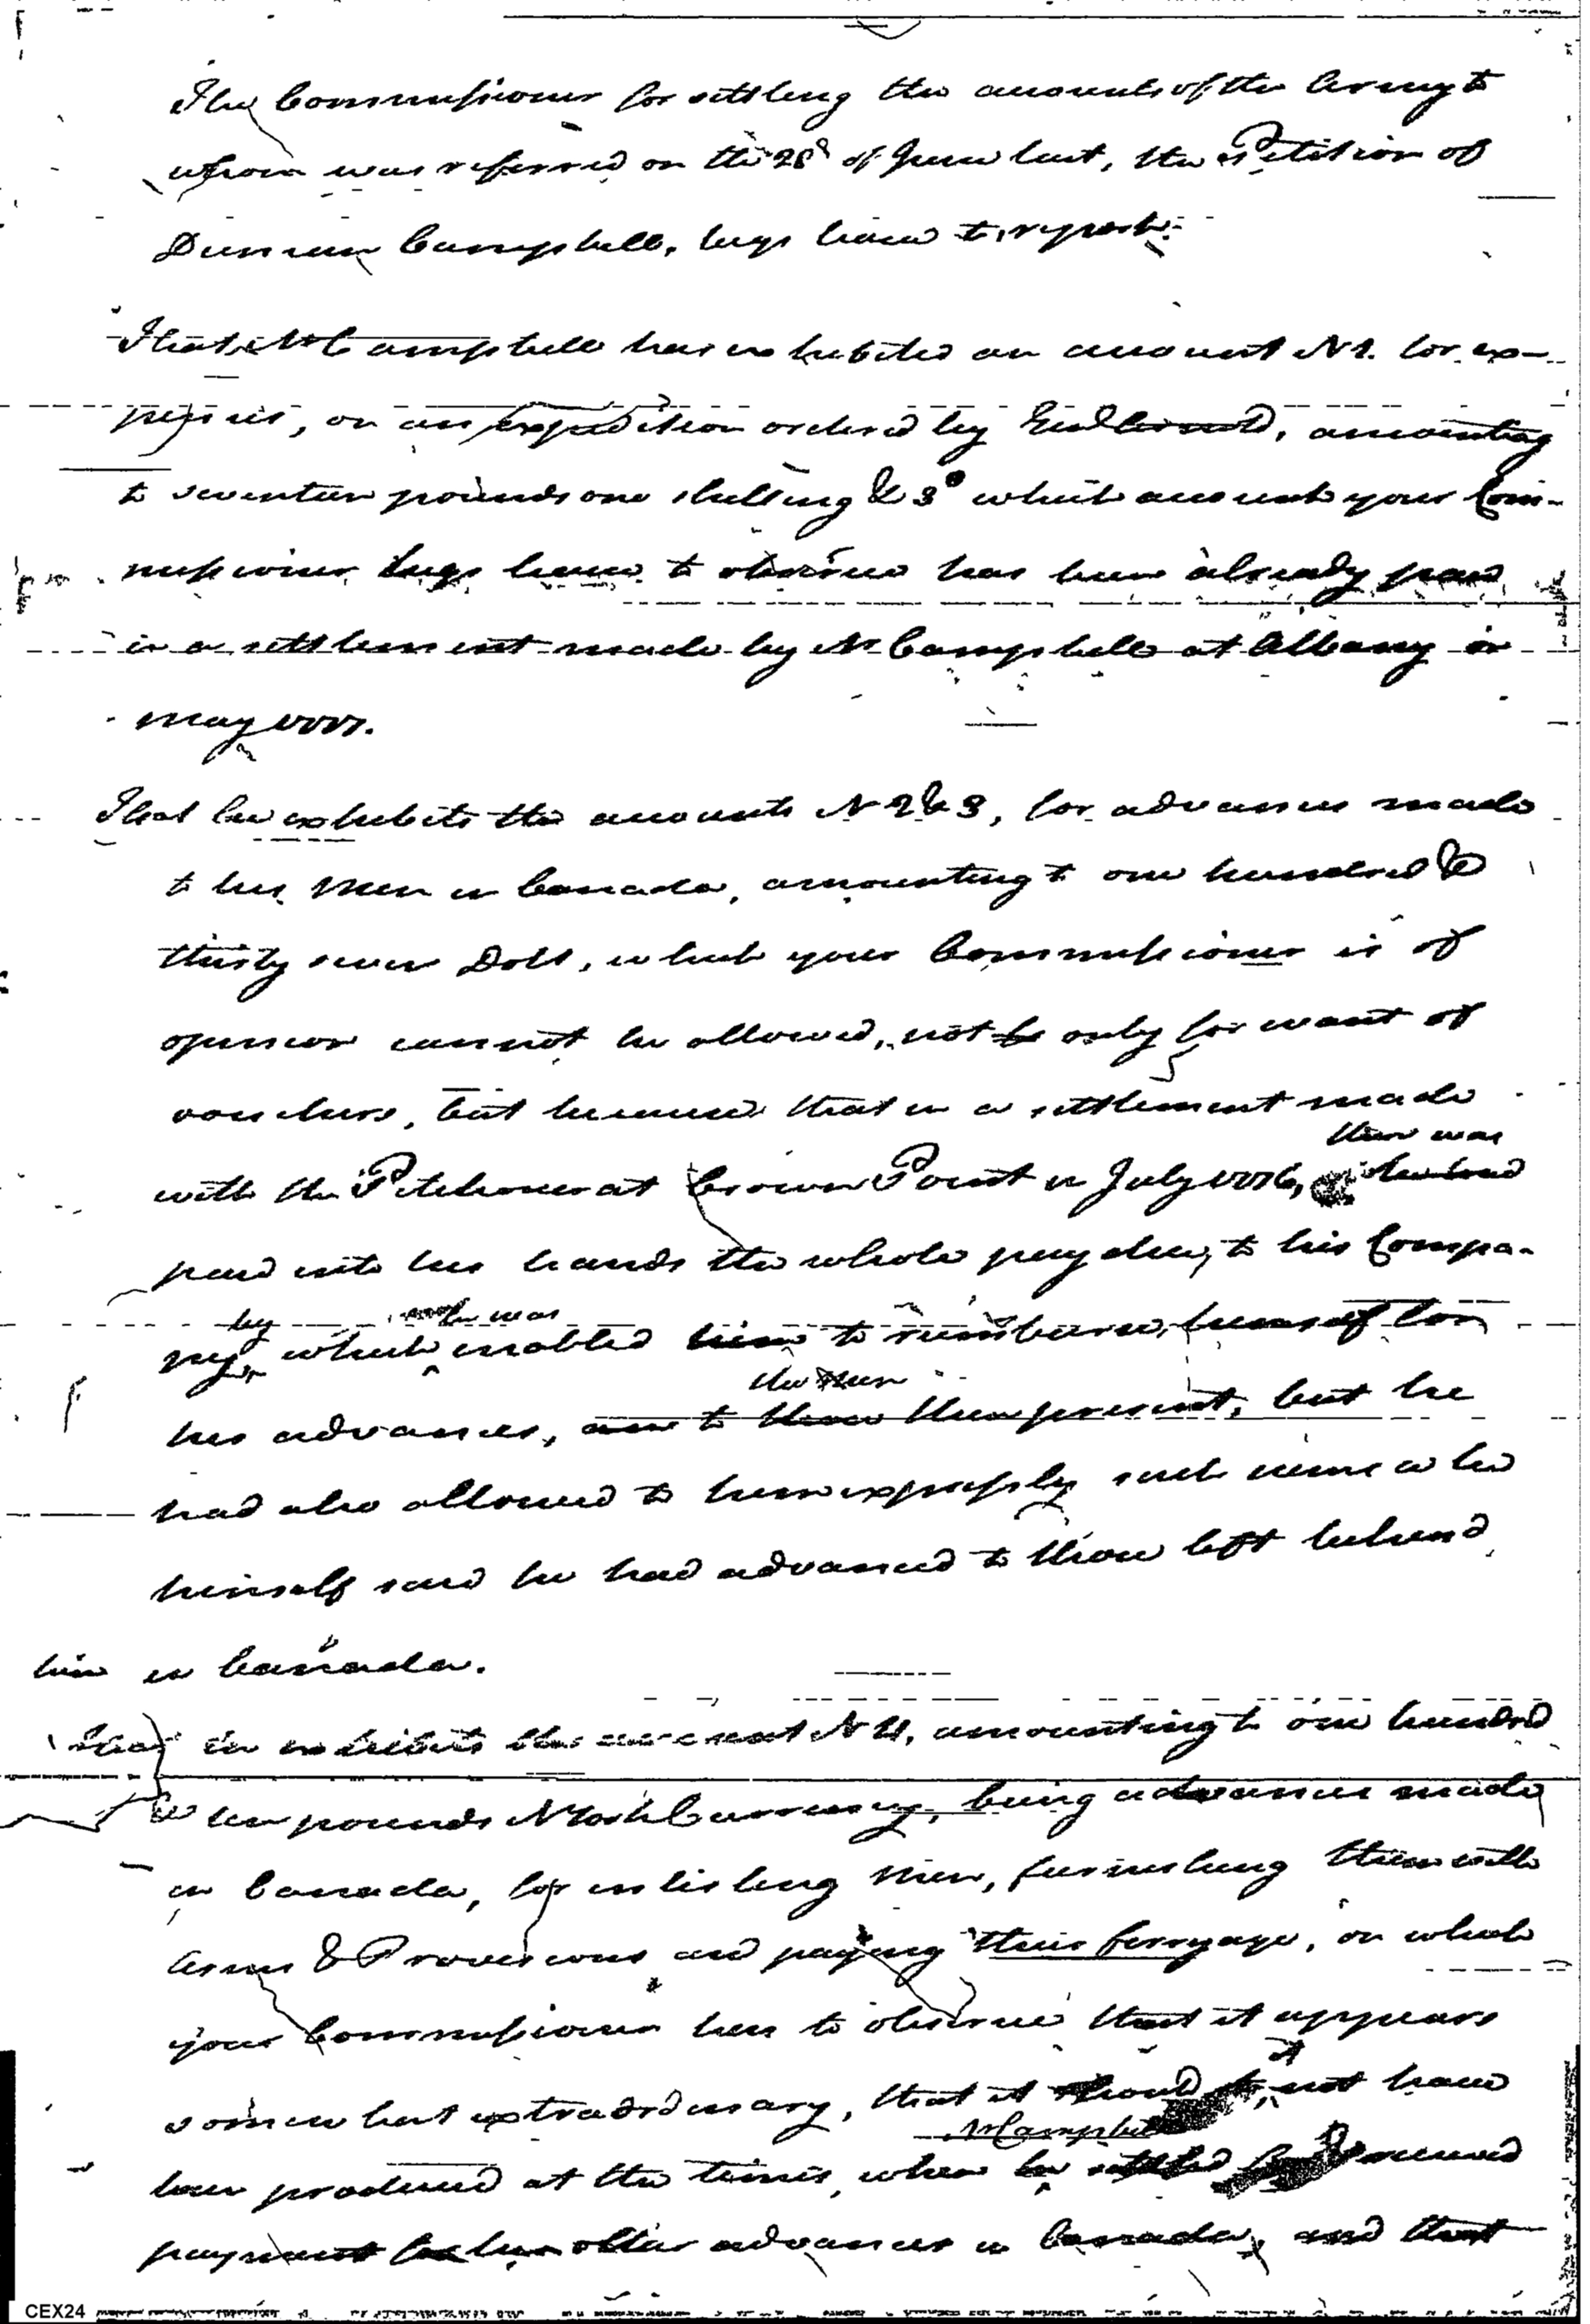 The Commissioner for settling the accounts of the Army to
whom was referred on the 28th of June last, the Petition of
Duncan Campbell, begs leave to report:
That Mr Campbell has exhibited an account No 1. for ex-
penses, on an expedition ordered by Genl Arnold, amounting
to seventeen pounds one shilling & 3d which account your Com-
missioner begs leave to observe has been already paid
in a settlement made by Mr Campbell at Albany in
may 1777.
That he exhibits the accounts No 2 & 3, for advances made
to his Men in Canada, amounting to one hundred &
thirty seven Dolls, which your Commissioner is of
opinion cannot be allowed, not only for want of
vouchers, but because that in a settlement made
there was
with the Petitioner at Crown Point in July 1776, he had
paid into his hands the whole pay due, to his Compa-
by he was
ny, which enabled him to reimburse himself for
the men
his advances, to those then present, but he
had also allowed to him expressly such sums as he
himself said he had advanced to those left behind
him in Canada.
That he exhibits the account No 4, amounting to one hundred
& ten pounds N York Currency, being advances made
in Canada, for enlisting Men, furnishing them with
Arms & Provisions and paying their ferryage, on which
your Commissioner has to observe that it appears
it
somewhat extraordinary, that it should not have
Mr Campbell
been produced at the time, when he settled received
payment for his other advances in Canada, and that
CEX24